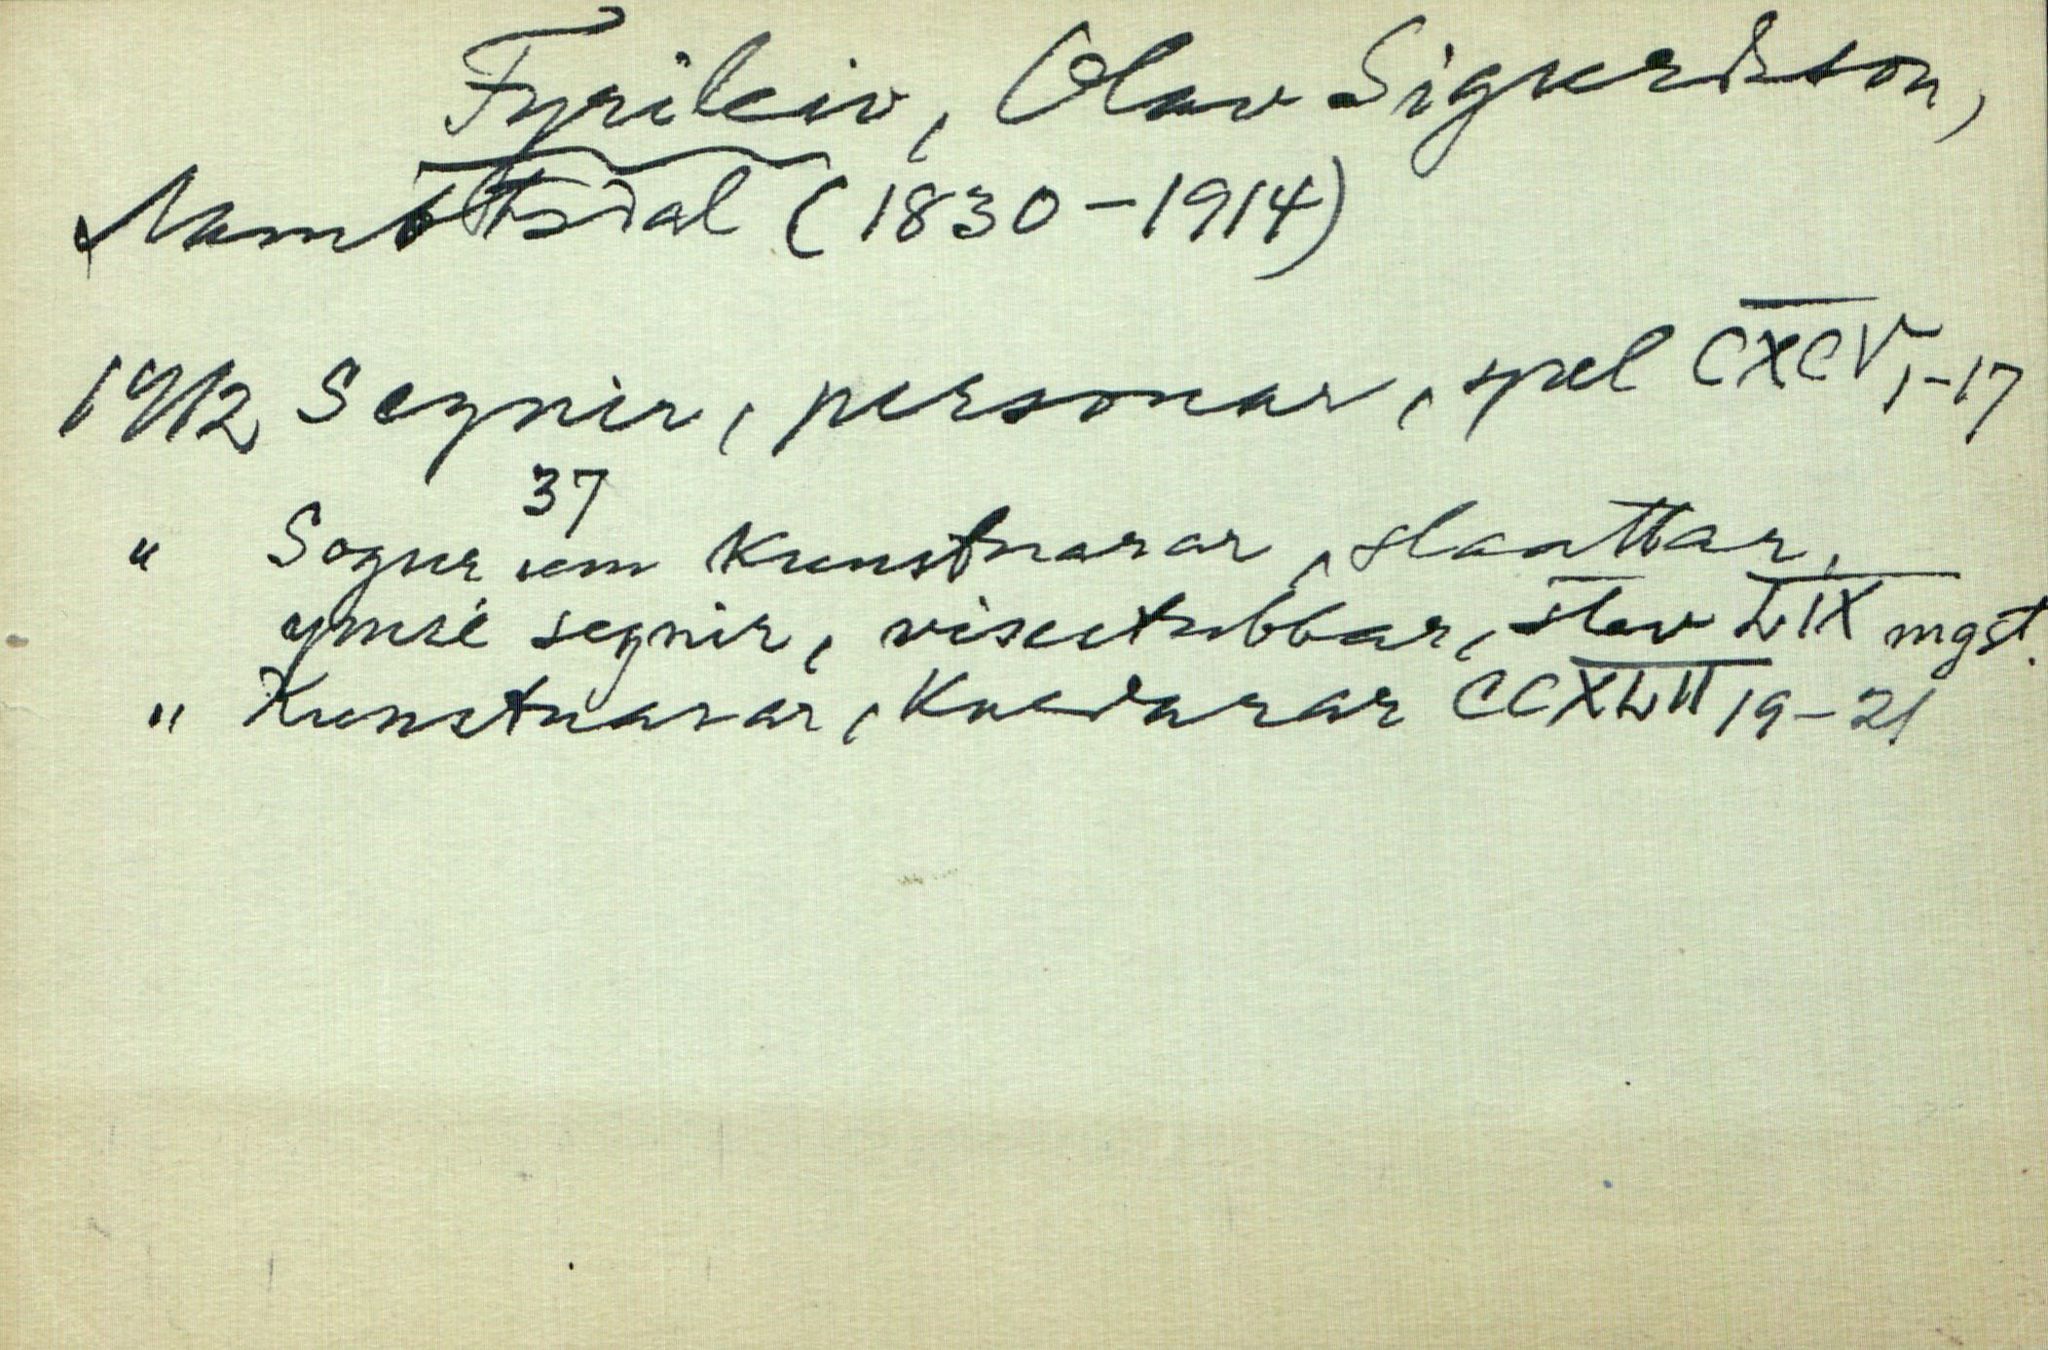 Fyrileiv, Olav Sigurdsson,
(1830-1914)
1912 Segnir, personar, spel CXCV, 1-17
37
" Sogur um Kunstnarar, slaattar,
ymsé segnir, visestubbar, stev LIX mgst.
" Kunstnarar, Kvedarar CCXLII 19-21